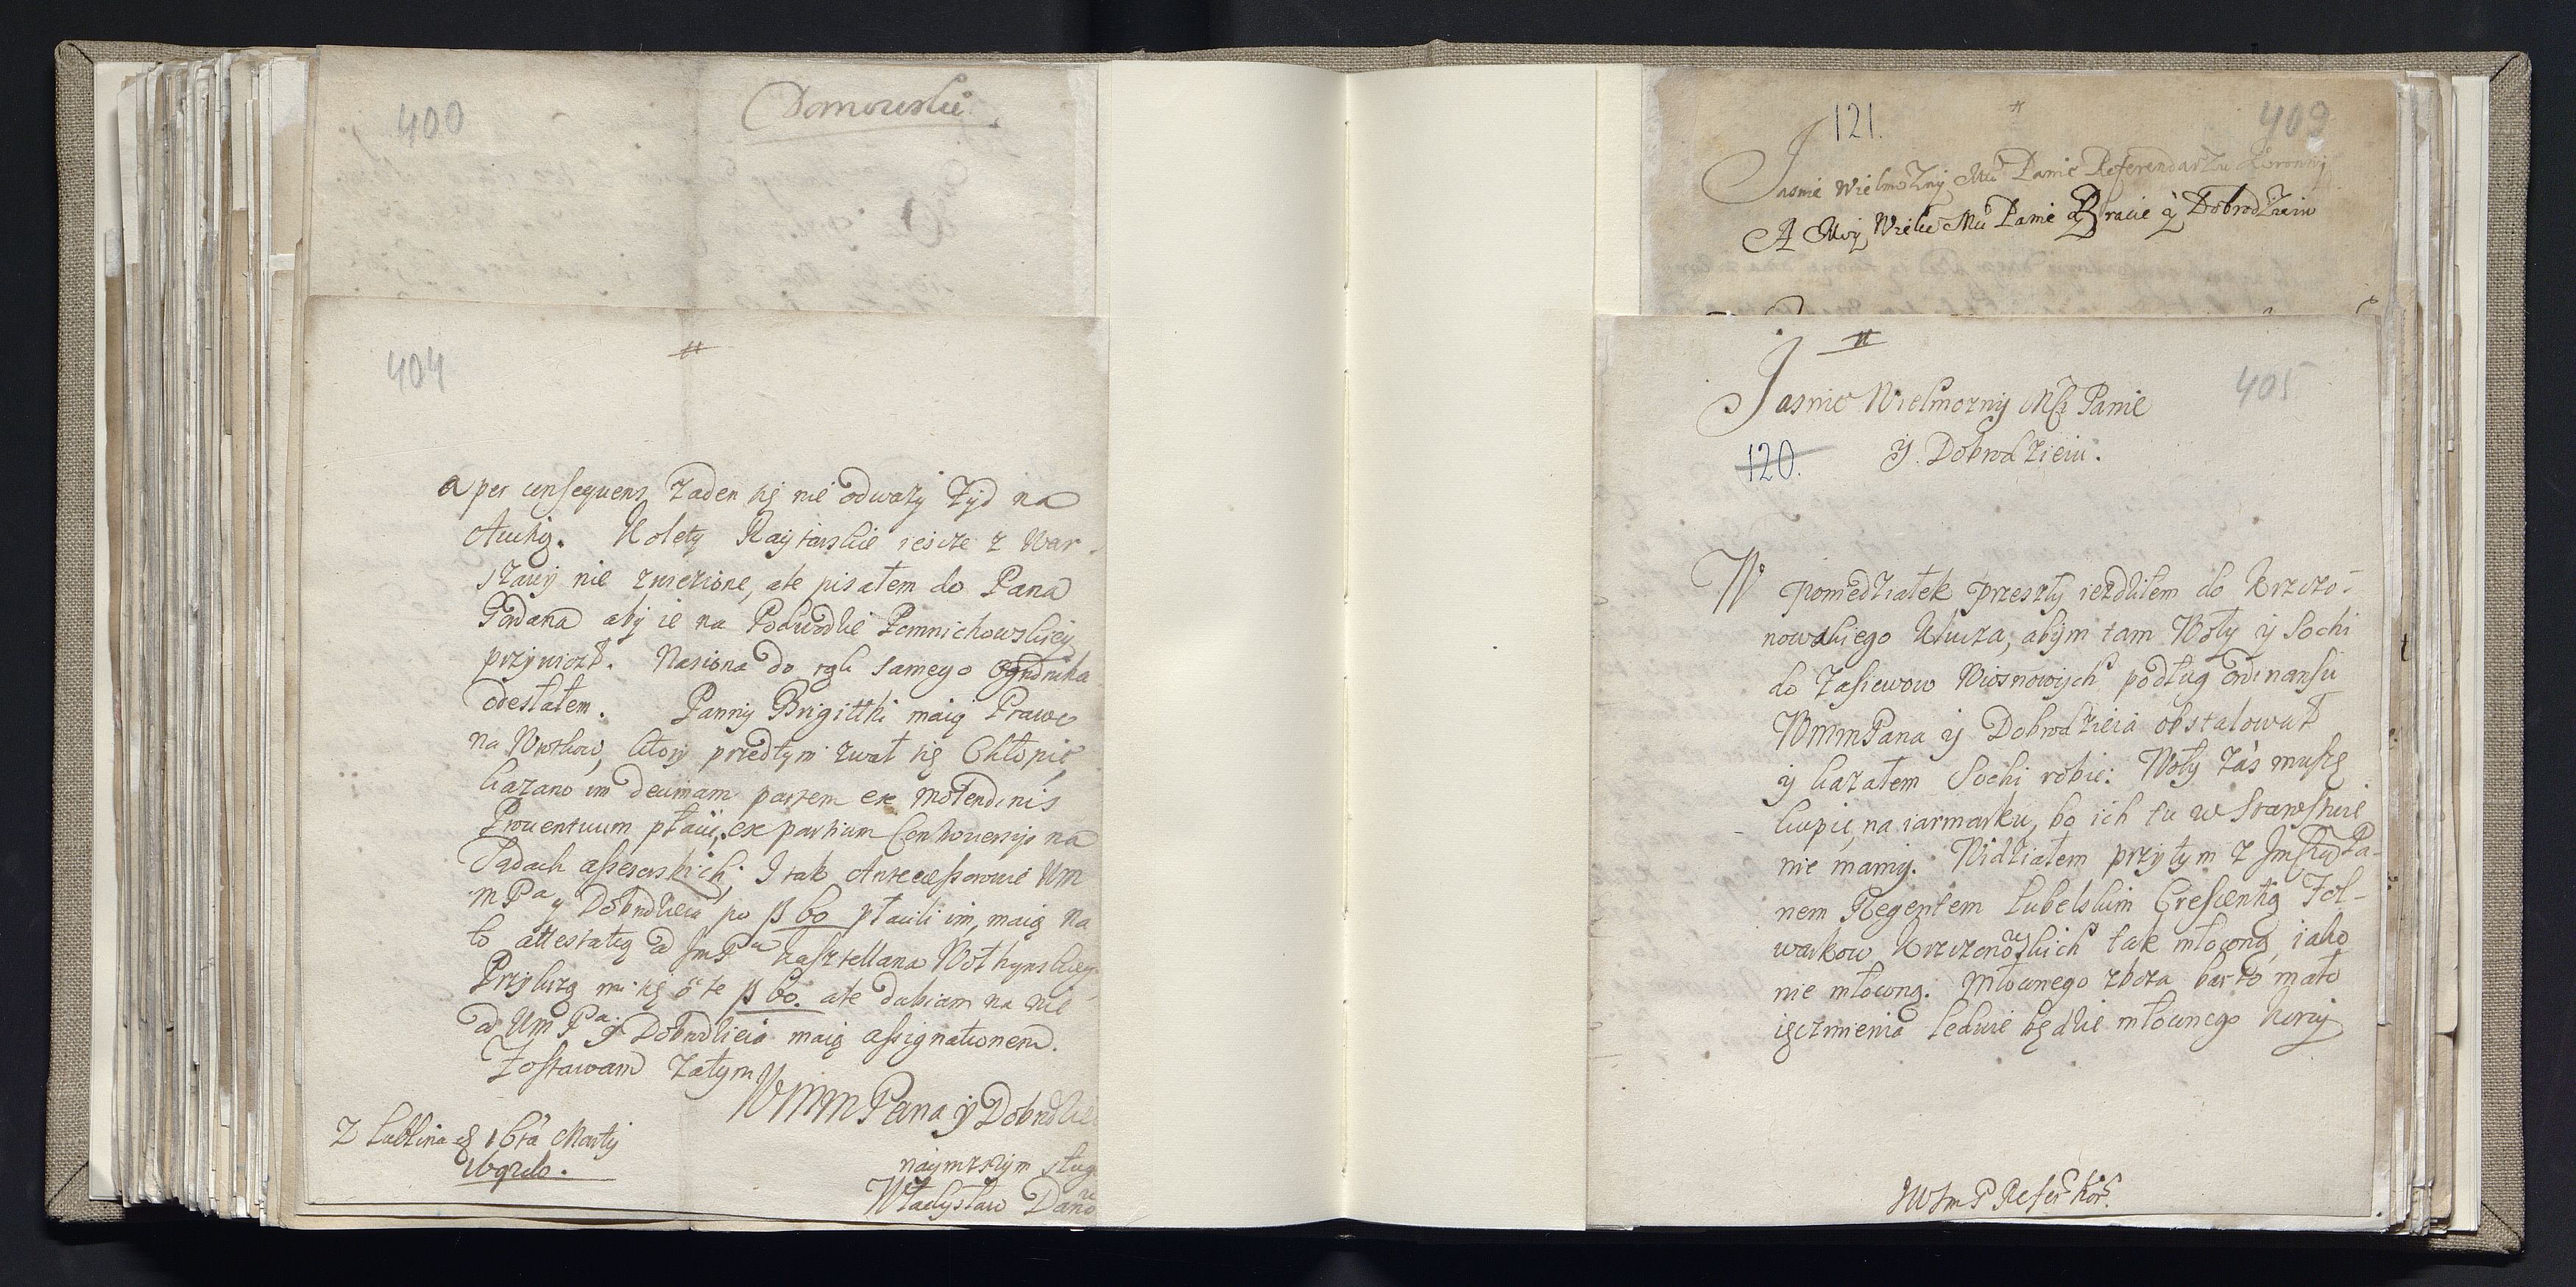 400
Domowskie
404
#
a per consequens zaden się nie odważy Zyd na
Aukcią. Kolety Raytarskie iescze z War-
szawy nie zwiezione, ale pisałem do Pana
Jordana aby ie na Podwodzie Zemnichowskiey
przywiozł. Nasiona do rąk samego Ogrodnika
odesłałem. Panny Brigittki maią Prawo
na Wrotkow, ktory przedtym zwał się Chłopie,
kazano im decimam partem ex molendinis
Prouentuum płacić, ex partium Controuersijs na
Sądach assesorskich; I tak Antecessorowie Wm
m Pa y Dobrodzieia po ß 60 płacili im, maią na
to attestatią od JmPa Kasztellana Wołhynskiego
Przykrzą mi się o te ß 60. ale dubiam na nie
od Wm Pa y Dobrodzieia maią assignationem.
Zostawam zatym
WMM Pana y Dobrodzie
Z Lublina d 16ta Martij
1692do.
nayniższym sługą
Władysław Dano
121.
#
409
Jasnie Wielmożny Mci Panie Referendarzu Koronny
A Moy Wielce Mci Panie Bracie y Dobrodzieiu
#
405
Jasnie Wielmozny Mſci Panie
120.
y Dobrodzieiu.
W poniedziałek przeszły iezdziłem do Krzczo-
nowskiego Klucza, abym tam Woły y Sochi
do Zasiewow Wiosnowych podług ordinansu
WmmPana y Dobrodzieia obstalował
y kazałem Sochi robić: Woły zás muszę
kupić na iarmarku, bo ich tu w Stawskie
nie mamy. Widziałem przytym z Jm Xdz Pa-
nem Regentem Lubelskim Crescentią Fol-
warkow Krzczonowskich tak młocona, iako
nie młoconą. Młocnego zboża barzo mało
ięczmienia ledwie będzie młocnego korcy
JWJmP Refer Kor: